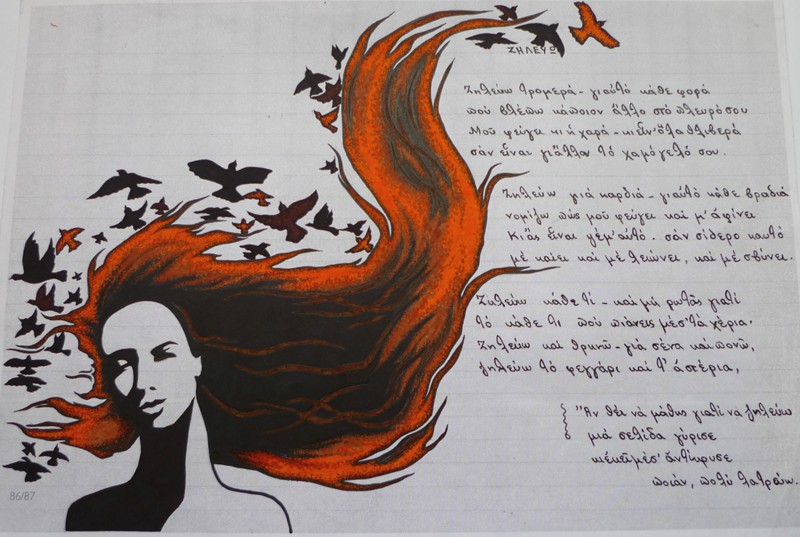 ΖΗΛΕΥΩ
Ζηλεύω τρομερά - γιαὐτό κάθε φορά
πού βλέπω κάποιον ἄλλο στό πλευρό σου
Μοῦ φεύγει κι ἡ χαρά - κιεἶν' ὅλα θλιβερά
σάν εἶναι γιἄλλα τό χαμόγελό σου.
Ζηλεύω γιά καρδιά - γιαὐτό κάθε βραδιά
νομίζω πώς μοῦ φεύγει καί μ' ἀφίνει
Κι ἄς εἶναι ψέμ' αὐτό. σάν σίδερο καυτό
μέ καίει καί μέ λειώνει, καί μέ σβύνει.
Ζηλεύω κάθε τί - καί μή ρωτᾶς γιατί
τό κάθε τι πού πιάνεις μέσ' τά χέρια.
Ζηλεύω καί θρηνῶ - γιά σένα καί πονῶ,
ζηλεύω τό φεγγάρι καί τ' ἀστέρια,
"Ἄν θές νά μάθης γιατί να ζηλεύω
μιά σελίδα γύρισε
ἀντίκρυσε
ποιάν, πολύ λατρεύω.
86/87